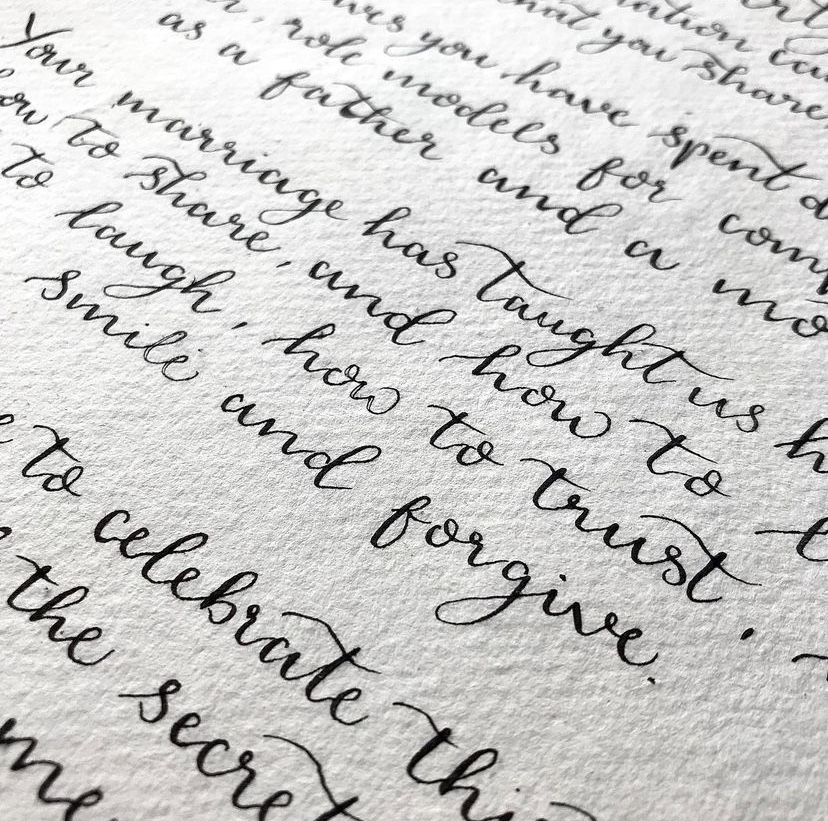 you share
you have spent
role models for
as a father and a
Your marriage has taught us
to share, and how to
to laugh, how to trust,
smile and forgive.
to celebrate
the secret
me,